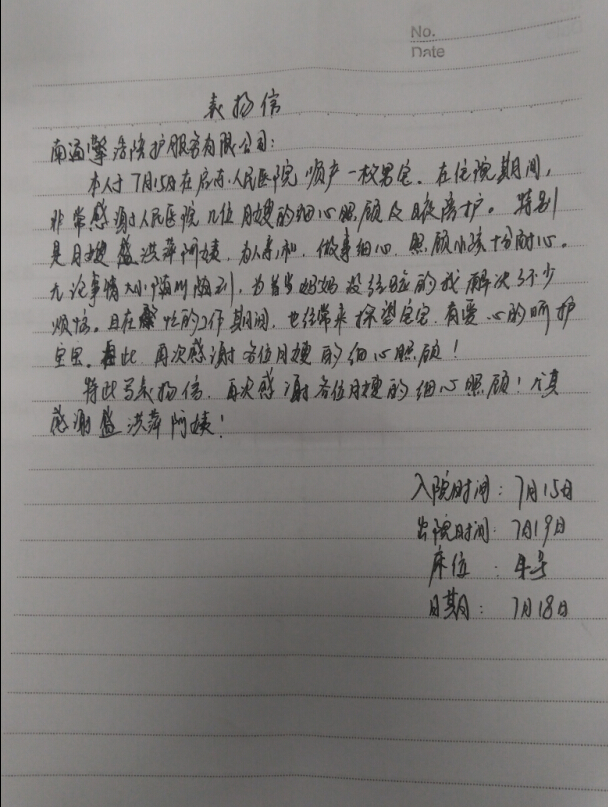 No.
Date
表扬信
南通擎浩陪护服务有限公司:
本人于7月15日在启东人民医院顺产一枚男宝。在住院期间,
非常感谢人民医院几位月嫂的细心照顾及日夜陪护。特别
是月嫂盛洪萍阿姨,为人亲和,做事细心,照顾小孩十分耐心。
无论事情大小随叫随到,为首当妈妈没经验的我解决了不少
烦恼。且在繁忙的工作期间,也经常来探望宝宝,有爱心的呵护
宝宝。在此,再次感谢各位月嫂的细心照顾!
特此写表扬信,再次感谢各位月嫂的细心照顾!尤其
感谢盛洪萍阿姨!
入院时间:7月15日
出院时间:7月19日
床位:4号
日期:7月18日